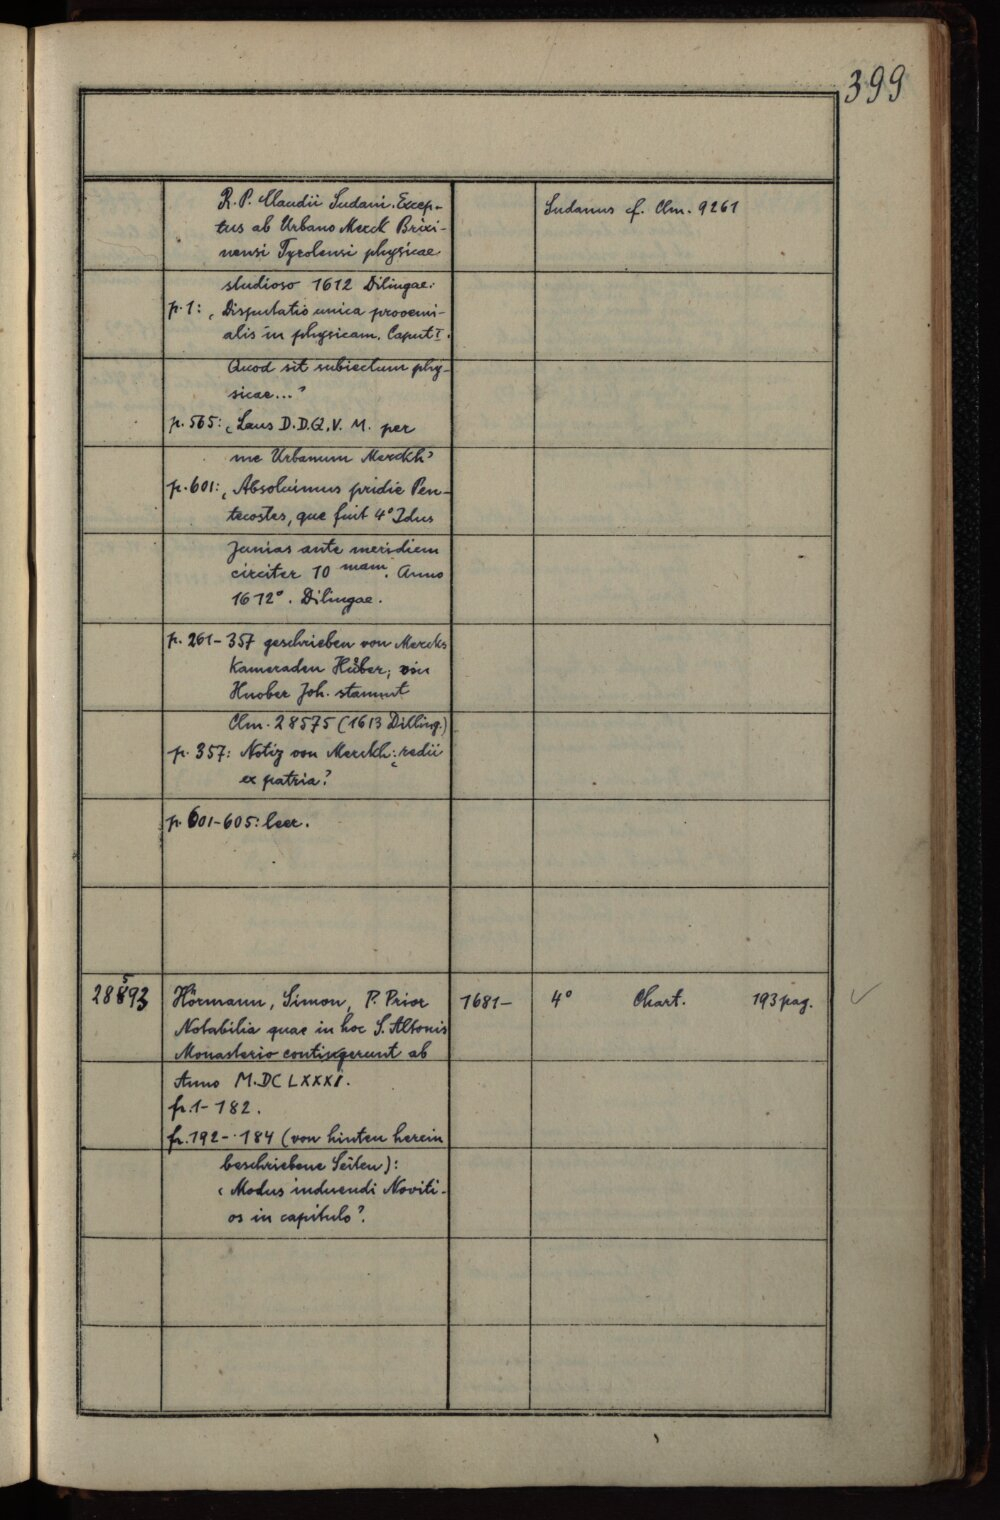 399
R. P. Claudii Sudani. Excep-
tus ab Urbano Merck Brixi-
nensi Tyrolensi physicae
studioso 1612 Dilingae.
p. 1: ‚Disputatio unica prooemi-
alis in physicam. Caput I.
Quod sit subiectum phy-
sicae...’
p. 565: ‚Laus D.D.G.V.M. per
me Urbanum Merckh’
p. 601: ‚Absolvimus pridie Pen-
tecostes, que fuit 4° Idus
Junias ante meridiem
circiter 10 mam. Anno
1612°. Dilingae.
p. 261-357 geschrieben von Mercks
Kameraden Hůber; ein
Huober Joh. stammt
Clm. 28575 (1613 Dilling.)
p. 357: Notiz von Merckh: ‚redii
ex patria’
p. 601-605: leer.
Sudanus cf. Clm. 9261
28593 Hörmann, Simon, P. Prior 1681- 4° Chart. 193 pag. ✓
Notabilia quae in hoc S. Altonis
Monasterio contigerunt ab
Anno M.DCLXXXI.
p. 1-182.
p. 192-184 (von hinten herein
beschriebene Seiten):
‚Modus induendi Noviti-
os in capitulo’.